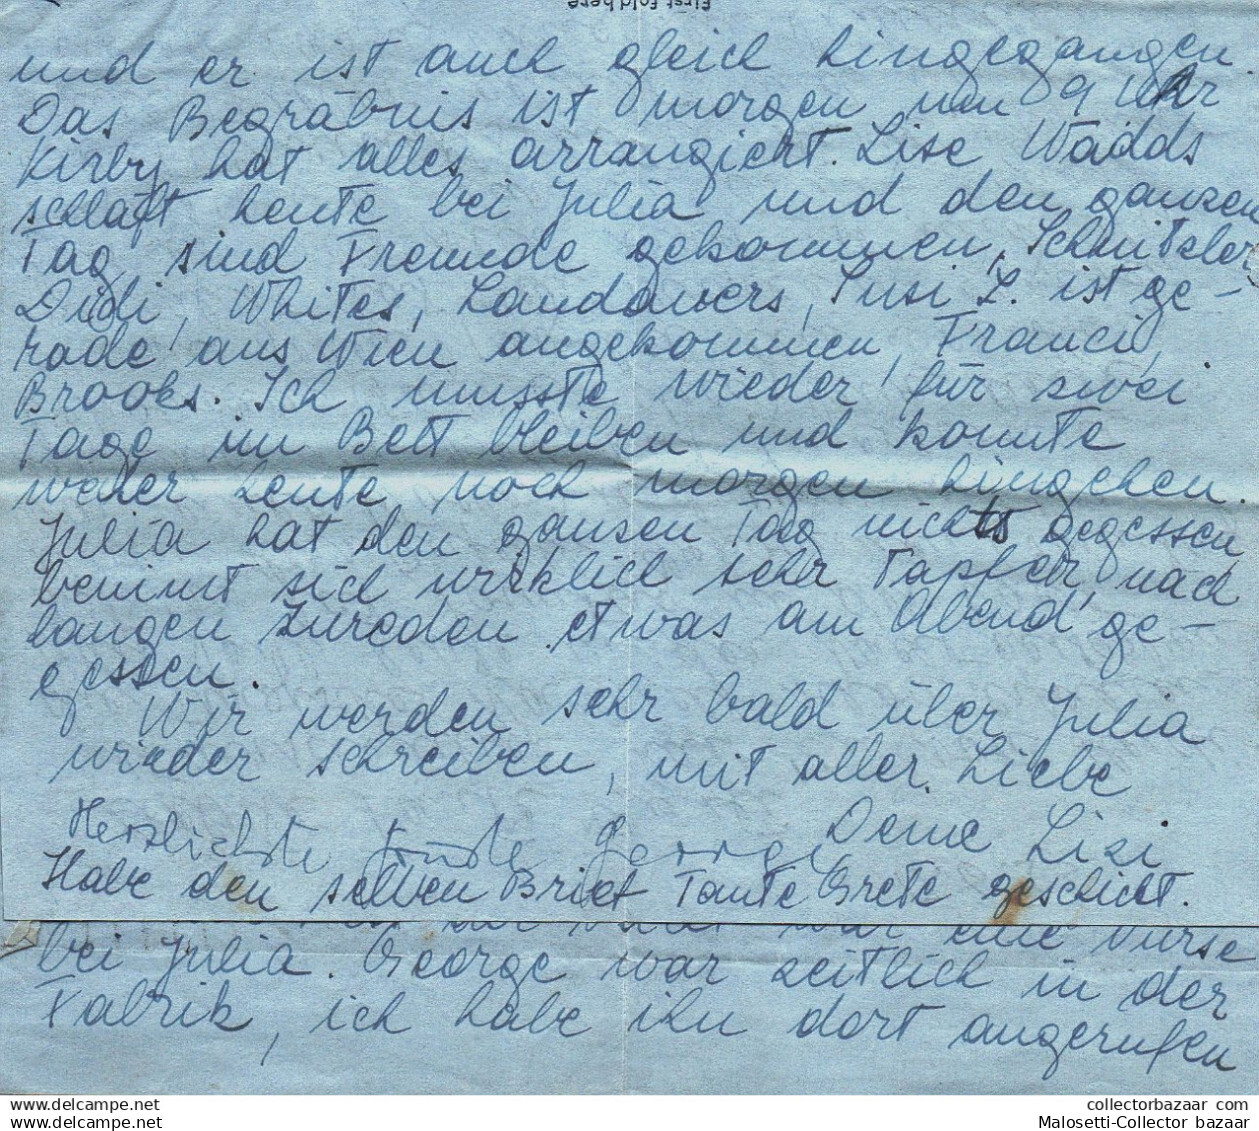 First fold here
und er ist auch gleich hingegangen.
Das Begräbnis ist morgen um 9 Uhr
Kirby hat alles arrangiert. Lise Wadds
schläft heute bei Julia und den ganzen
Tag sind Freunde gekommen, Schnitzler
Didi, Whites, Landauers, Susi L. ist ge-
rade aus Wien angekommen, Franci,
Brooks. Ich musste wieder für zwei
Tage im Bett bleiben und konnte
weder heute noch morgen hingehen.
Julia hat den ganzen Tag nichts gegessen,
benimmt sich wirklich sehr tapfer, nach
langen Zureden etwas am Abend ge-
gessen.
Wir werden sehr bald über Julia
wieder schreiben, mit aller Liebe
Deine Lisi
Herzlichste George
Habe den selben Brief Tante Grete geschickt.
war eine Nurse
bei Julia. George war zeitlich in der
Fabrik, ich habe ihn dort angerufen
collectorbazaar.com
Malosetti-Collector bazaar